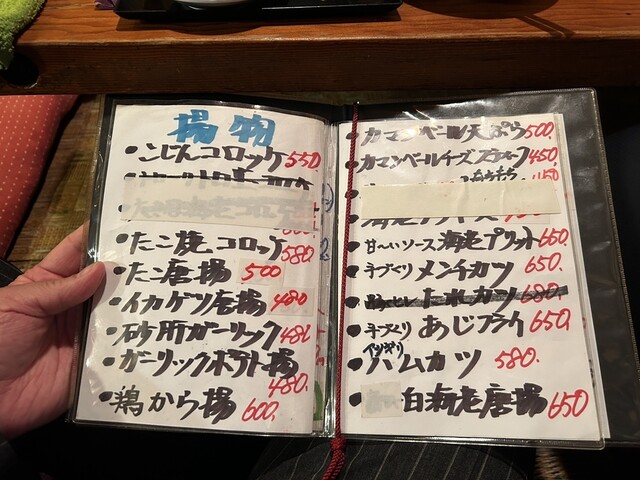 揚物
・こじんコロッケ 550
・たこ焼コロッケ 580.
・たこ唐揚 500
・イカゲソ唐揚 480
・砂肝ガーリック 480
・ガーリックポテト揚 480.
・鶏から揚 600.
・カマンベール天ぷら 500.
・カマンベールチーズ 450.
450
・甘〜いソース海老フリット 650.
・手づくりメンチカツ 650.
カツ 680.
・手づくりあじフライ 650.
・ハムカツ 580.
・白海老唐揚 650